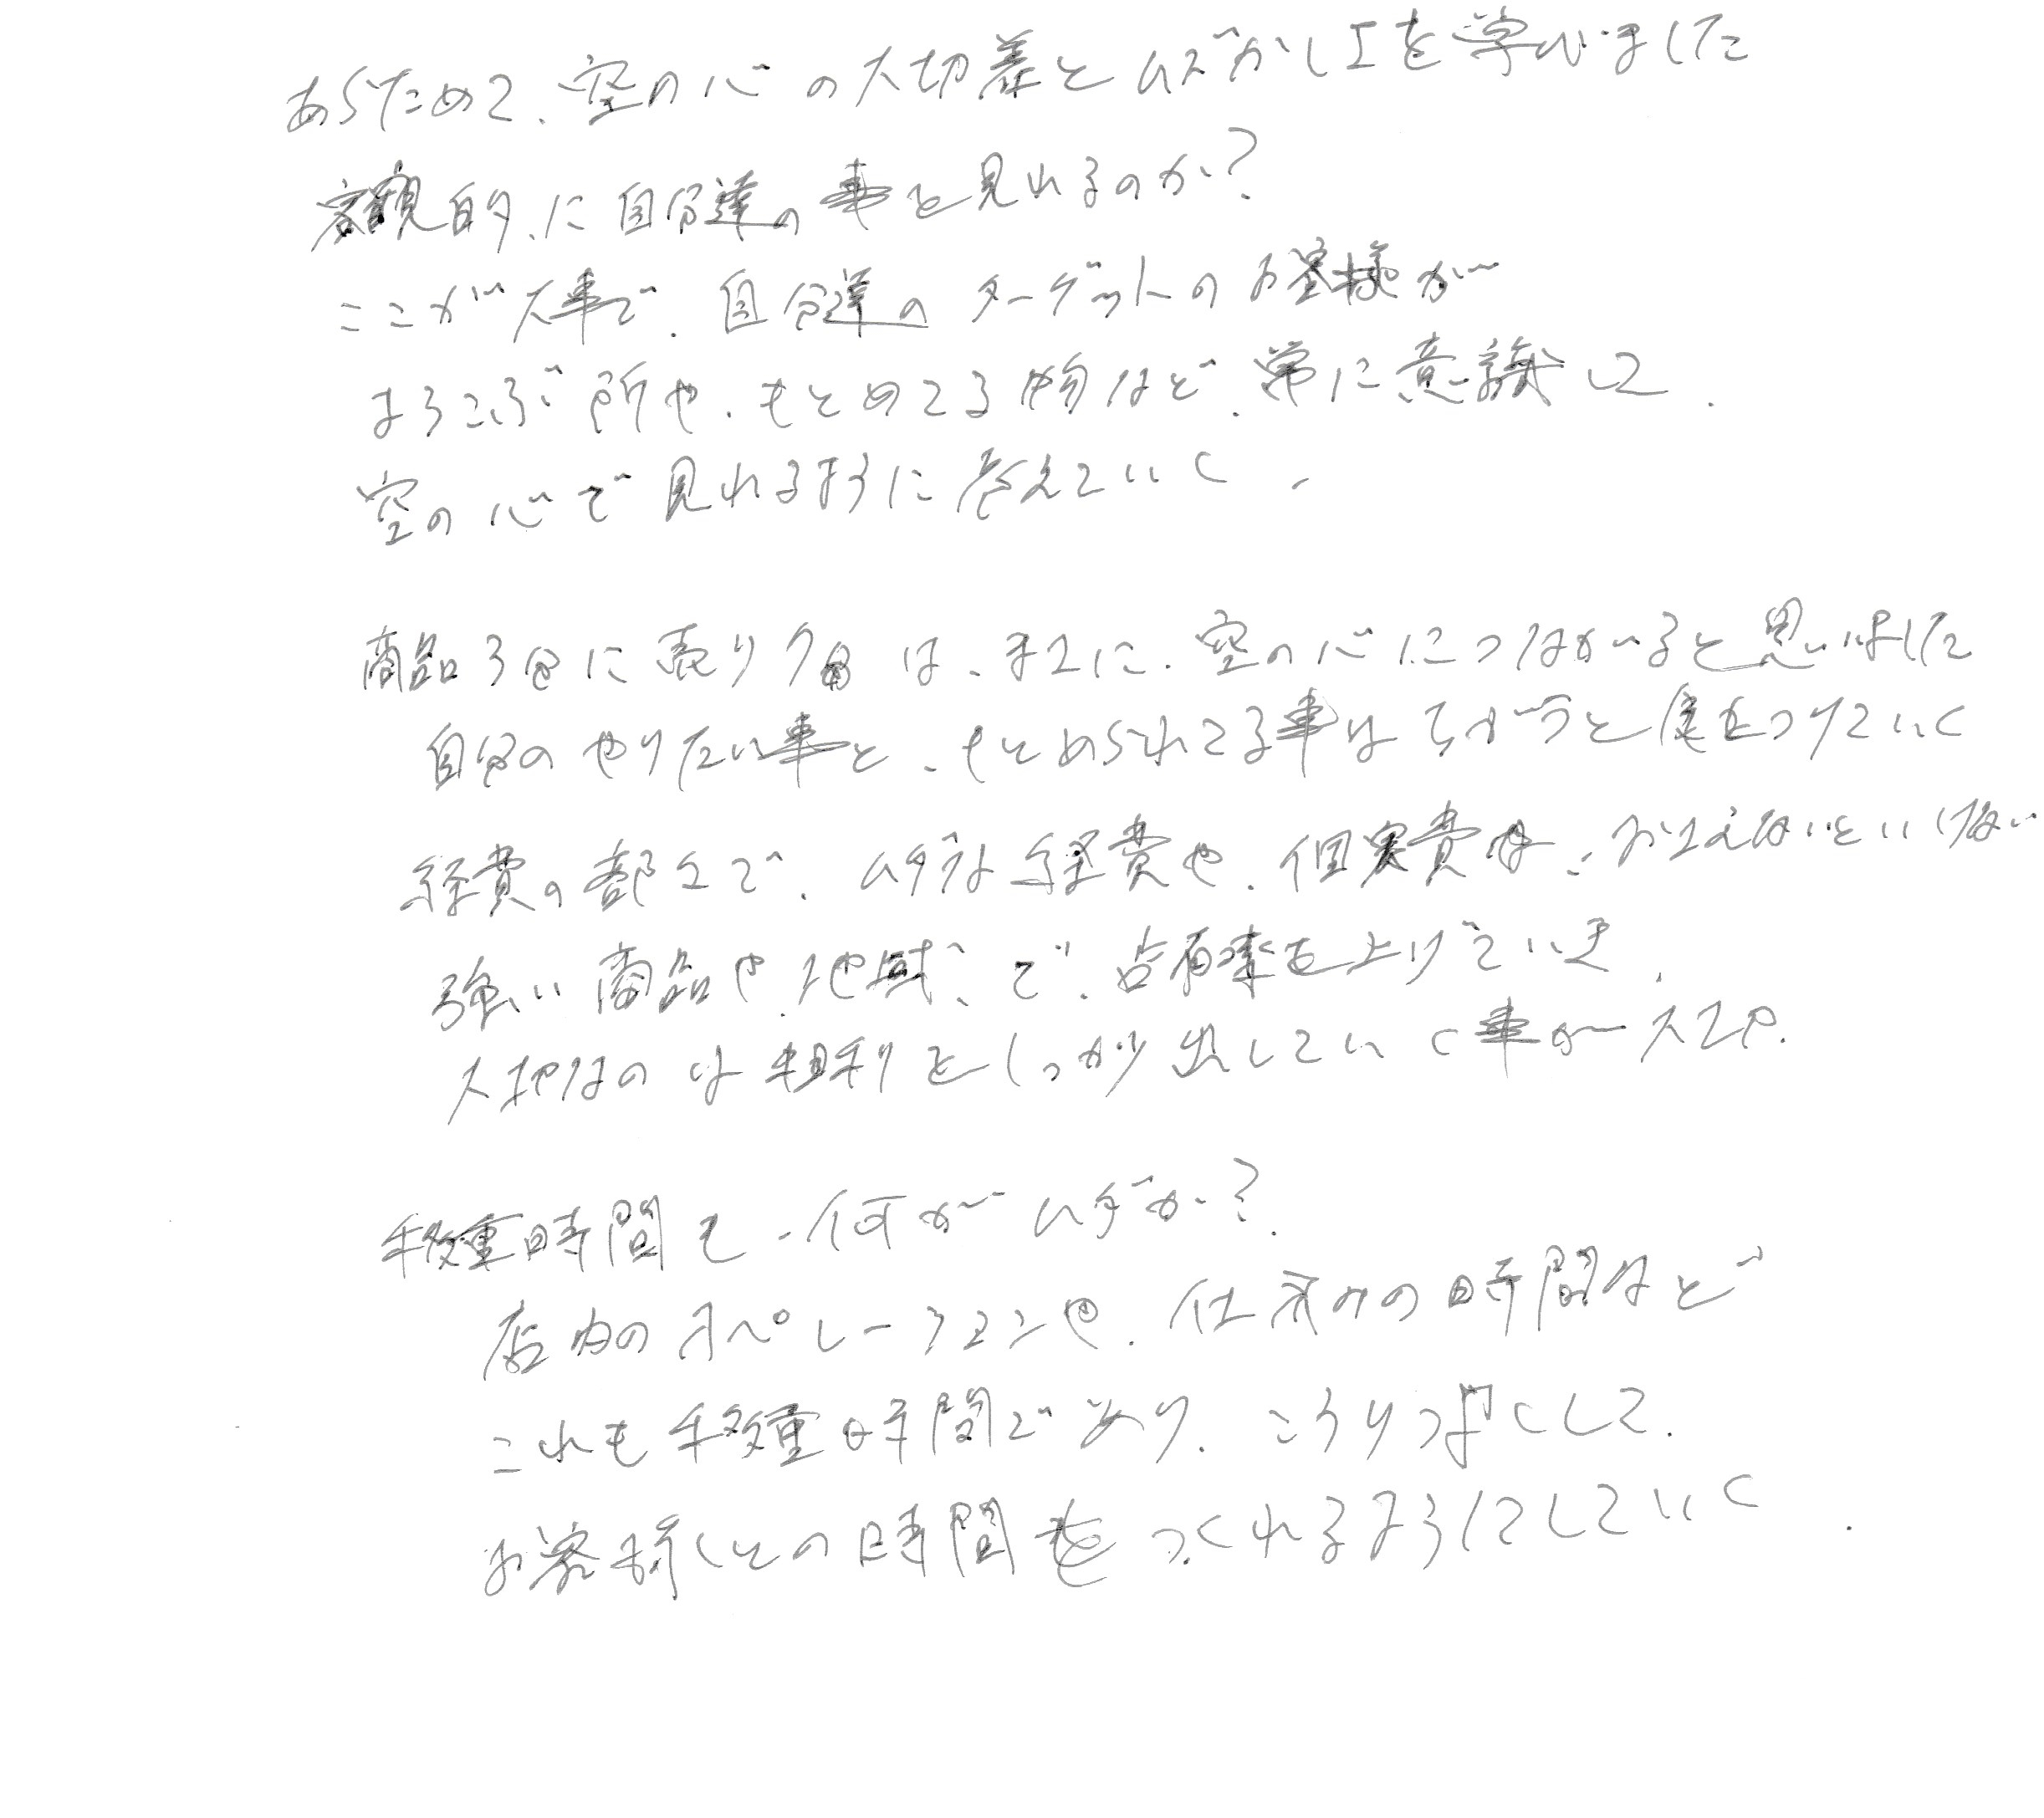 あらためて、空の心の大切差とムズかしエを学びました
客観的に自分達の事を見れるのか?
ここが大事で、自分達のターゲットのお客様が
ようこぶ所や、もとめてる物など、常に意識して、
空の心で見れる様に考えていく、
商品3倍に売り方は、まさに、空の心につながいると思いました
自分のやりたい事と、もとめられてる事はちがうと気をつけていく
経費の部分で、ムダな経費や、個実費は、おさえないといけない
強い商品や、地域、で、占有率を上げていき、
大切なのは粗利をしっかり出していく事が大切。
移動時間も、何がムダか?
店内のオペレーションや、仕込みの時間など
これも移動時間であり、こうりつよくして、
お客様との時間をつくれるようにしていく、